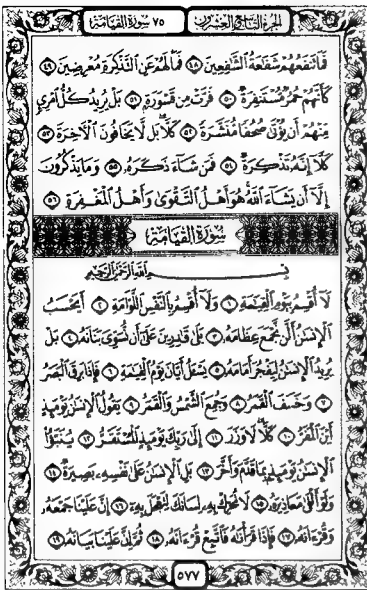 الجزء التاسع والعشرون ٧٥ سورة القيامة
فَمَا تَنفَعُهُمْ شَفَاعَةُ الشَّافِعِينَ ٤٨ فَمَا لَهُمْ عَنِ التَّذْكِرَةِ مُعْرِضِينَ ٤٩
كَأَنَّهُمْ حُمُرٌ مُّسْتَنفِرَةٌ ٥٠ فَرَّتْ مِن قَسْوَرَةٍ ٥١ بَلْ يُرِيدُ كُلُّ امْرِئٍ
مِّنْهُمْ أَن يُؤْتَىٰ صُحُفًا مُّنَشَّرَةً ٥٢ كَلَّا بَل لَّا يَخَافُونَ الْآخِرَةَ ٥٣
كَلَّا إِنَّهُ تَذْكِرَةٌ ٥٤ فَمَن شَاءَ ذَكَرَهُ ٥٥ وَمَا يَذْكُرُونَ
إِلَّا أَن يَشَاءَ اللَّهُ هُوَ أَهْلُ التَّقْوَىٰ وَأَهْلُ الْمَغْفِرَةِ ٥٦
سورة القيامة
بِسْمِ اللَّهِ الرَّحْمَٰنِ الرَّحِيمِ
لَا أُقْسِمُ بِيَوْمِ الْقِيَامَةِ ١ وَلَا أُقْسِمُ بِالنَّفْسِ اللَّوَّامَةِ ٢ أَيَحْسَبُ
الْإِنسَانُ أَلَّن نَّجْمَعَ عِظَامَهُ ٣ بَلَىٰ قَادِرِينَ عَلَىٰ أَن نُّسَوِّيَ بَنَانَهُ ٤ بَلْ
يُرِيدُ الْإِنسَانُ لِيَفْجُرَ أَمَامَهُ ٥ يَسْأَلُ أَيَّانَ يَوْمُ الْقِيَامَةِ ٦ فَإِذَا بَرِقَ الْبَصَرُ
٧ وَخَسَفَ الْقَمَرُ ٨ وَجُمِعَ الشَّمْسُ وَالْقَمَرُ ٩ يَقُولُ الْإِنسَانُ يَوْمَئِذٍ
أَيْنَ الْمَفَرُّ ١٠ كَلَّا لَا وَزَرَ ١١ إِلَىٰ رَبِّكَ يَوْمَئِذٍ الْمُسْتَقَرُّ ١٢ يُنَبَّؤُا
الْإِنسَانُ يَوْمَئِذٍ بِمَا قَدَّمَ وَأَخَّرَ ١٣ بَلِ الْإِنسَانُ عَلَىٰ نَفْسِهِ بَصِيرَةٌ ١٤
وَلَوْ أَلْقَىٰ مَعَاذِيرَهُ ١٥ لَا تُحَرِّكْ بِهِ لِسَانَكَ لِتَعْجَلَ بِهِ ١٦ إِنَّ عَلَيْنَا جَمْعَهُ
وَقُرْآنَهُ ١٧ فَإِذَا قَرَأْنَاهُ فَاتَّبِعْ قُرْآنَهُ ١٨ ثُمَّ إِنَّ عَلَيْنَا بَيَانَهُ ١٩
٥٧٧